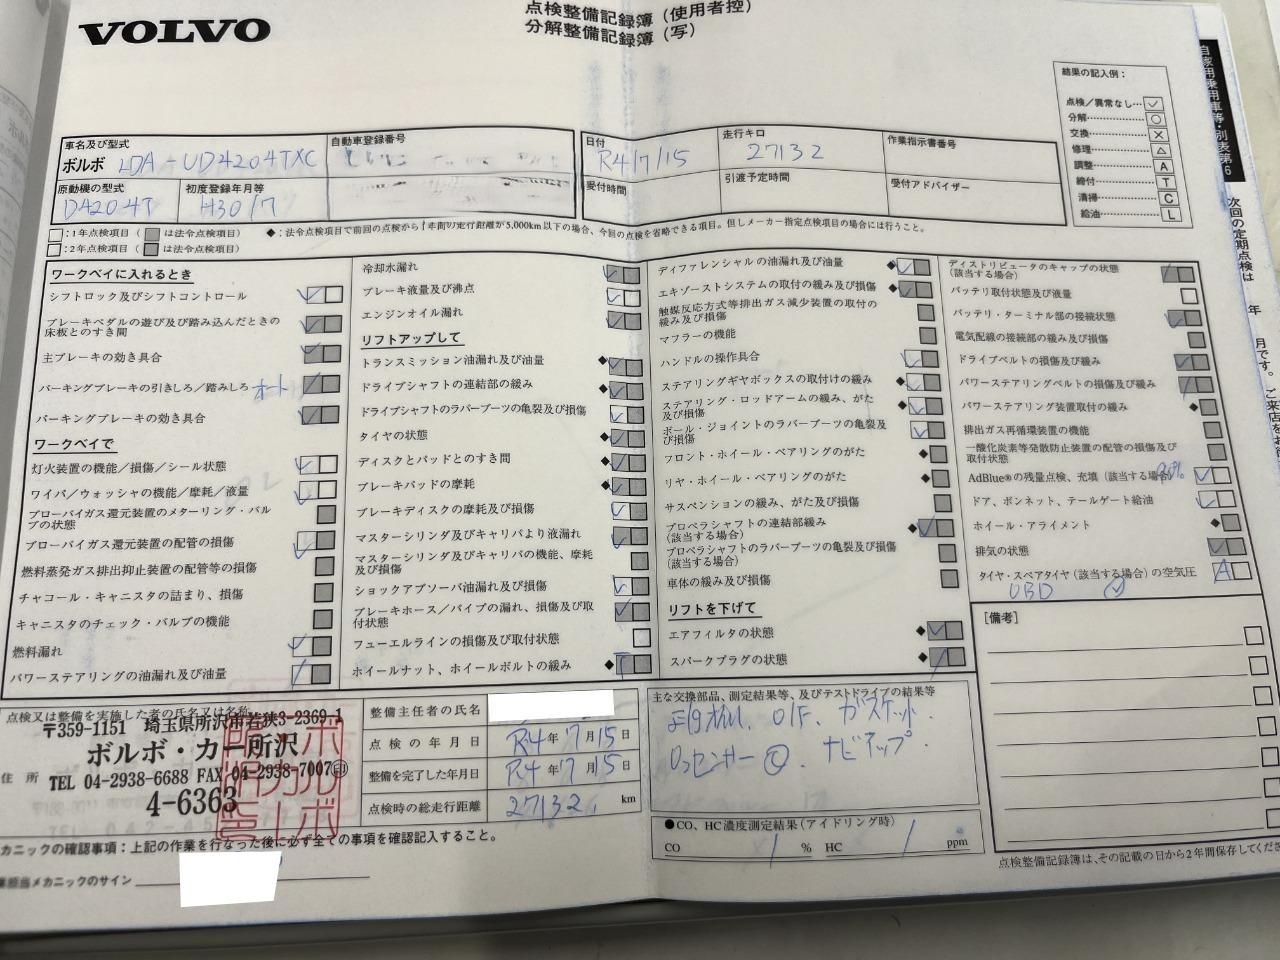 VOLVO
点検整備記録簿(使用者控)
分解整備記録簿(写)
自家用乗用車等・別表第6
結果の記入例:
点検/異常なし… ✓
分解 ○
交換 ×
修理 △
調整 A
締付 T
清掃 C
給油 L
車名及び型式
ボルボ LDA-UD4204TXC
自動車登録番号
原動機の型式
D4204T
初度登録年月等
H30/7
日付
R4/7/15
走行キロ
27132
作業指示書番号
受付時間
引渡予定時間
受付アドバイザー
□:1年点検項目( は法令点検項目)
□:2年点検項目( は法令点検項目)
◆:法令点検項目で前回の点検から1年間の走行距離が5,000km以下の場合、今回の点検を省略できる項目。但しメーカー指定点検項目の場合には行うこと。
ワークベイに入れるとき
シフトロック及びシフトコントロール
ブレーキペダルの遊び及び踏み込んだときの
床板とのすき間
主ブレーキの効き具合
パーキングブレーキの引きしろ/踏みしろ オート
パーキングブレーキの効き具合
ワークベイで
灯火装置の機能/損傷/シール状態
ワイパ/ウォッシャの機能/摩耗/液量
ブローバイガス還元装置のメターリング・バル
ブの状態
ブローバイガス還元装置の配管の損傷
燃料蒸発ガス排出抑止装置の配管等の損傷
チャコール・キャニスタの詰まり、損傷
キャニスタのチェック・バルブの機能
燃料漏れ
パワーステアリングの油漏れ及び油量
冷却水漏れ
ブレーキ液量及び沸点
エンジンオイル漏れ
リフトアップして
トランスミッション油漏れ及び油量
ドライブシャフトの連結部の緩み
ドライブシャフトのラバーブーツの亀裂及び損傷
タイヤの状態
ディスクとパッドとのすき間
ブレーキパッドの摩耗
ブレーキディスクの摩耗及び損傷
マスターシリンダ及びキャリパより液漏れ
マスターシリンダ及びキャリパの機能、摩耗
及び損傷
ショックアブソーバ油漏れ及び損傷
ブレーキホース/パイプの漏れ、損傷及び取
付状態
フューエルラインの損傷及び取付状態
ホイールナット、ホイールボルトの緩み T
ディファレンシャルの油漏れ及び油量
エキゾーストシステムの取付の緩み及び損傷
触媒反応方式等排出ガス減少装置の取付の
緩み及び損傷
マフラーの機能
ハンドルの操作具合
ステアリングギヤボックスの取付けの緩み
ステアリング・ロッドアームの緩み、がた
及び損傷
ボール・ジョイントのラバーブーツの亀裂及
び損傷
フロント・ホイール・ベアリングのがた
リヤ・ホイール・ベアリングのがた
サスペンションの緩み、がた及び損傷
プロペラシャフトの連結部緩み
(該当する場合)
プロペラシャフトのラバーブーツの亀裂及び損傷
(該当する場合)
車体の緩み及び損傷
リフトを下げて
エアフィルタの状態
スパークプラグの状態
ディストリビュータのキャップの状態
(該当する場合)
バッテリ取付状態及び液量
バッテリ・ターミナル部の接続状態
電気配線の接続部の緩み及び損傷
ドライブベルトの損傷及び緩み
パワーステアリングベルトの損傷及び緩み
パワーステアリング装置取付の緩み
排出ガス再循環装置の機能
一酸化炭素等発散防止装置の配管の損傷及び
取付状態
AdBlue®の残量点検、充填(該当する場合)
ドア、ボンネット、テールゲート給油
ホイール・アライメント
排気の状態
タイヤ・スペアタイヤ(該当する場合)の空気圧 A
OBD ✓
[備考]
点検又は整備を実施した者の氏名又は名称
〒359-1151 埼玉県所沢市若狭3-2369-1
ボルボ・カー所沢
住所
TEL 04-2938-6688 FAX 04-2938-7007 ㊞
4-6363
整備主任者の氏名
点検の年月日 R4年7月15日
整備を完了した年月日 R4年7月15日
点検時の総走行距離 27132 km
主な交換部品、測定結果等、及びテストドライブの結果等
O/F、ガスケット、
O₂センサー Ⓒ、ナビアップ、
●CO、HC濃度測定結果(アイドリング時)
CO / % HC / ppm
カニックの確認事項:上記の作業を行なった後に必ず全ての事項を確認記入すること。
担当メカニックのサイン
点検整備記録簿は、その記載の日から2年間保存してくださ
次回の定期点検は 年 月です。